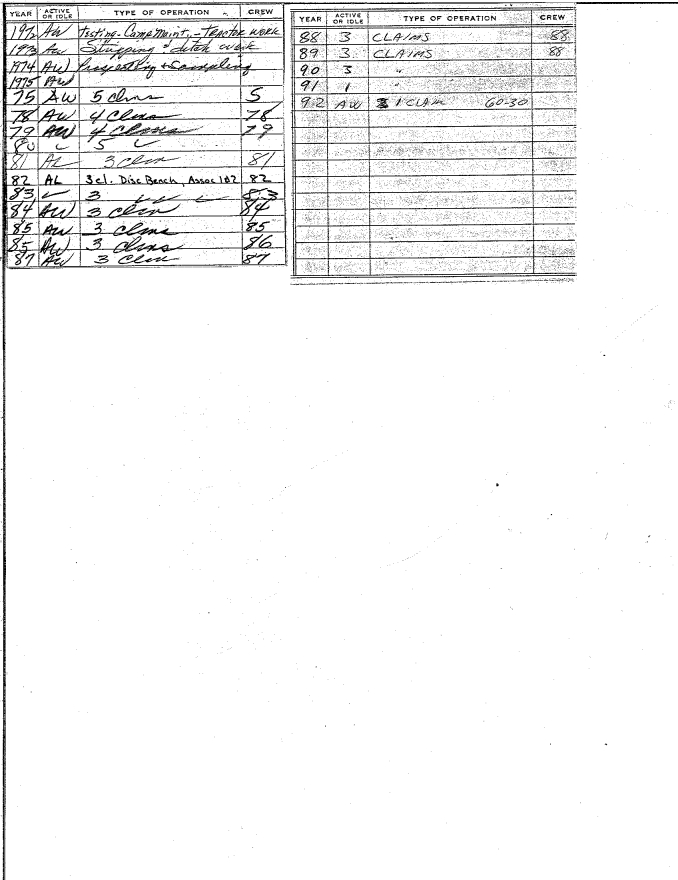 YEAR ACTIVE OR IDLE TYPE OF OPERATION CREW
1972 AW Testing - Camp Maint. - Tractor work
1973 AW Stripping & ditch work
1974 AW Prospecting & Sampling
1975 AW
75 AW 5 clms 5
78 AW 4 Clms 78
79 AW 4 Clms 79
80 " 5 "
81 AL 3 clm 81
82 AL 3 cl. Disc Bench, Assoc 1&2 82
83 " 3 " " " 83
84 AW 3 clm 84
85 AW 3 clms 85
85 AW 3 clms 86
87 AW 3 clm 87
YEAR ACTIVE OR IDLE TYPE OF OPERATION CREW
88 3 CLAIMS 88
89 3 CLAIMS 88
90 3 "
91 1 "
92 AW 1 CLAIM 60-30